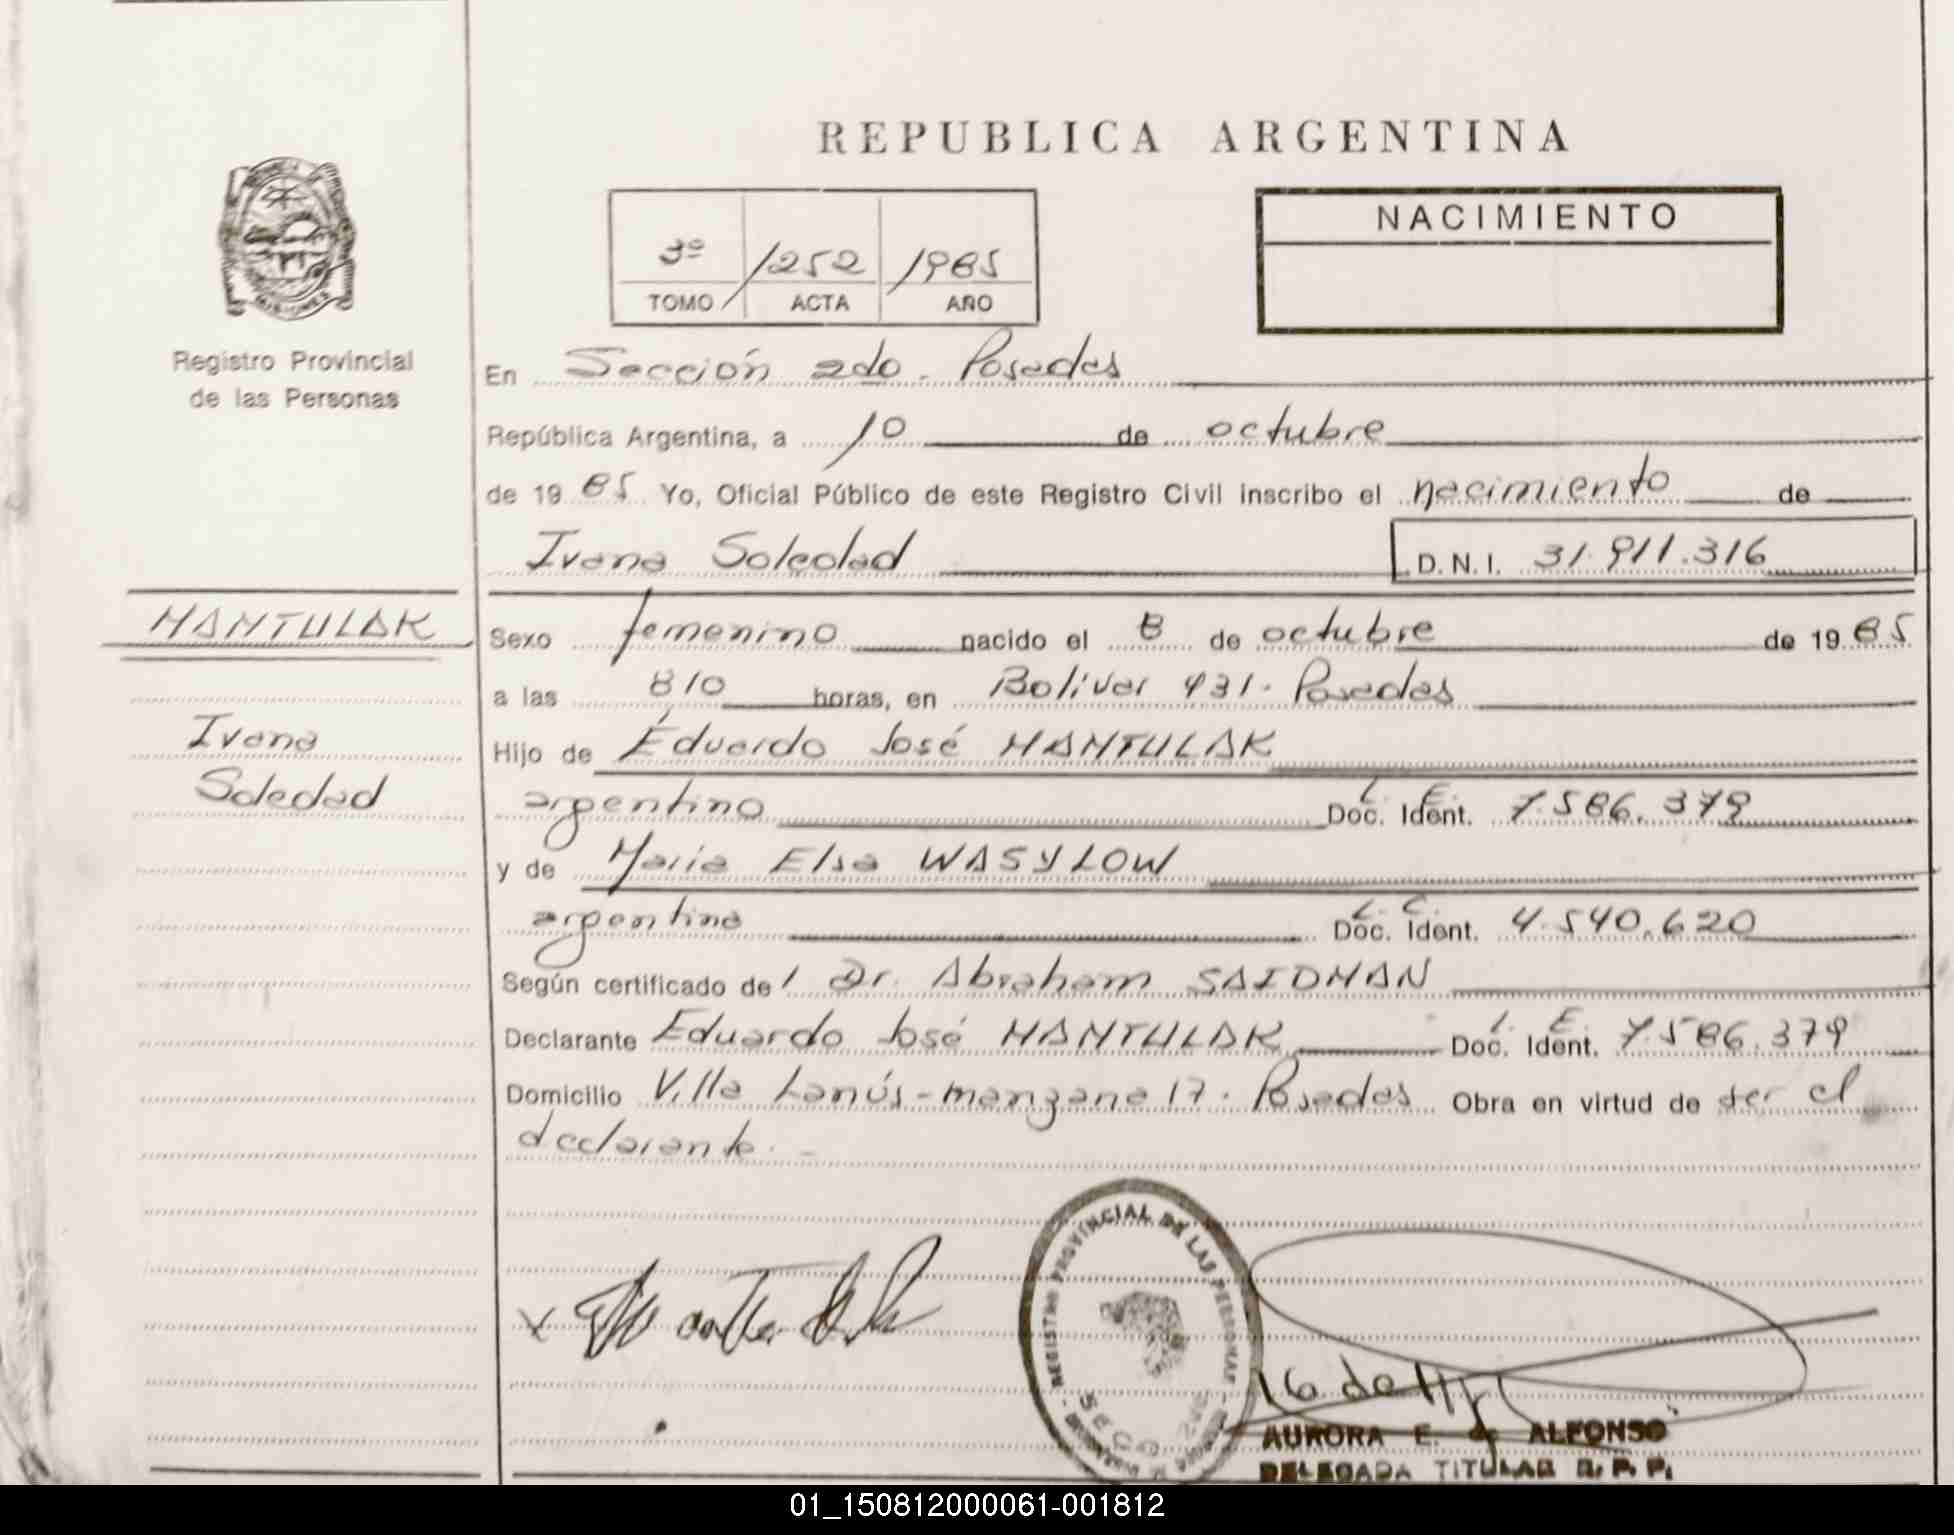 REPUBLICA ARGENTINA
3º /1252 /1985
TOMO ACTA AÑO
NACIMIENTO
MISIONES
Registro Provincial
de las Personas
En Sección 2do. Posadas
República Argentina, a 10 de octubre
de 19 85 Yo, Oficial Público de este Registro Civil inscribo el nacimiento de
Ivana Soledad D.N.I. 31.911.316
MANTULAK
Sexo femenino nacido el 8 de octubre de 19 85
a las 810 horas, en Bolívar 431. Posadas
Ivana
Hijo de Eduardo José MANTULAK
Soledad
argentino Doc. Ident. L. E. 7.586.379
y de María Elsa WASYLOW
argentina Doc. Ident. L. C. 4.540.620
Según certificado de l Dr. Abraham SAIDMAN
Declarante Eduardo José MANTULAK Doc. Ident. L. E. 7.586.379
Domicilio Villa Lanús - manzana 17. Posadas Obra en virtud de ser el
declarante. -
REGISTRO PROVINCIAL DE LAS PERSONAS
AURORA E. de ALFONSO
DELEGADA TITULAR R. P. P.
01_150812000061-001812